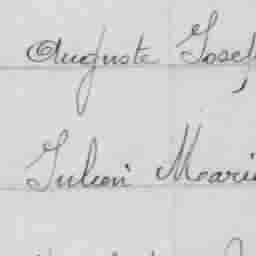 Auguste Josep
Julien Marie